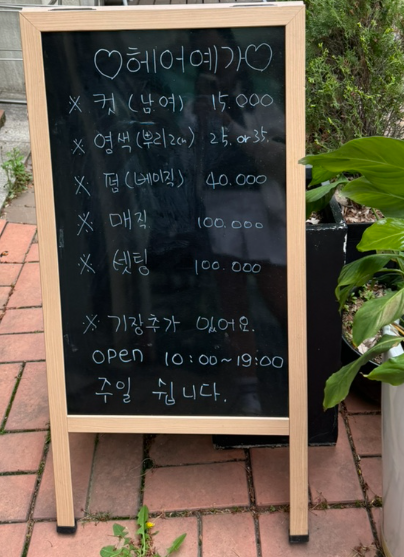 ♡헤어예가♡
※ 컷 (남여) 15.000
※ 염색(뿌리2cm) 25. or 35.
※ 펌 (베이직) 40.000
※ 매직 100.000
※ 셋팅 100.000
※ 기장추가 있어요.
open 10:00~19:00
주일 쉽니다.